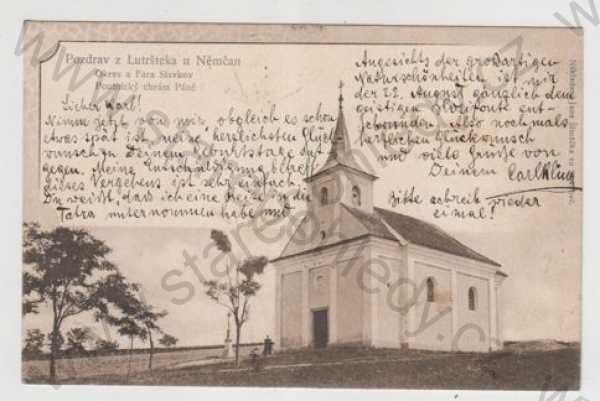 Pozdrav z Lutršteka u Němčan
Okres a Fara Slavkov
Poutnický chrám Páně
Lieber Karl!
Nimm jetzt von mir, obgleich es schon
etwas spät ist, meine herzlichsten Glück-
wünsche zu Deinem Geburtstage ent-
gegen. Meine Entschuldigung betreff
dieses Vergehens ist sehr einfach:
Du weißt, daß ich eine Reise in die
Tatra unternommen habe und
Angesichts der großartigen
Naturschönheiten ist mir
der 22. August gänzlich dem
geistigen Horizonte ent-
schwunden. Also nochmals
herzlichen Glückwunsch
und viele Grüße von
Deinem Carl
Bitte schreib wieder
einmal!